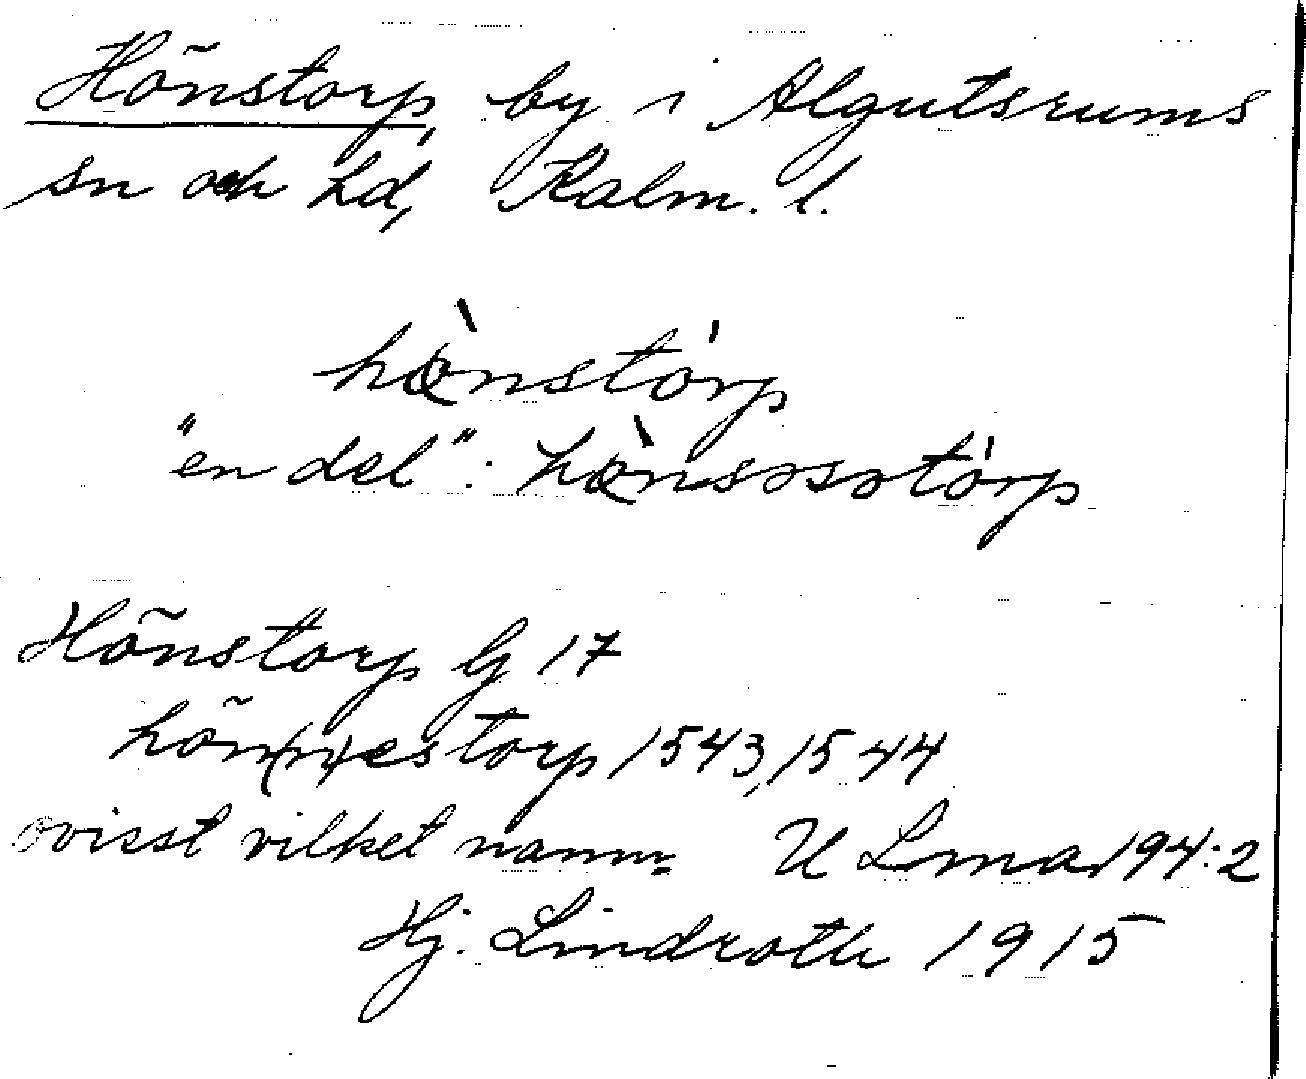 Hönstorp, by i Algutsrums
sn och hd, Kalm. l.
hø̀nstórp
"en del": hø̀nsəsətórp
Hönstorp G 17
hön(n)estorp 1543, 1544
ovisst vilket namn U Lma 194:2
Hj. Lindroth 1915